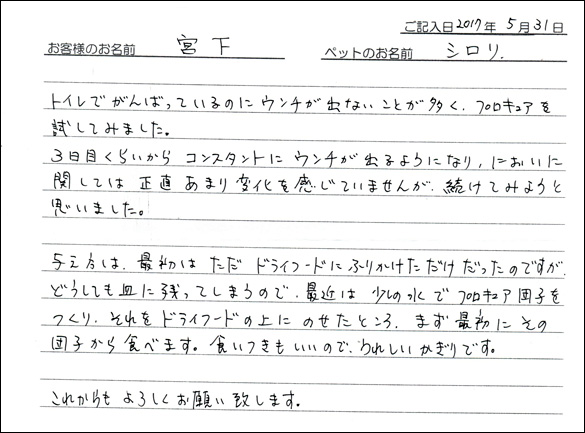 ご記入日2017年 5月31日
お客様のお名前 宮下 ペットのお名前 シロリ.
トイレでがんばっているのにウンチが出ないことが多く、プロキュアを
試してみました。
3日目くらいから コンスタントに ウンチが出るようになり、においに
関しては 正直 あまり 変化を感じていませんが、続けてみようと
思いました。
与え方は、最初は ただ ドライフードに ふりかけただけ だったのですが、
どうしても皿に残ってしまうので、最近は 少しの水で プロキュア団子を
つくり、それをドライフードの上に のせたところ、まず 最初に その
団子から食べます。食いつきもいいので、うれしいかぎりです。
これからも よろしくお願い致します。